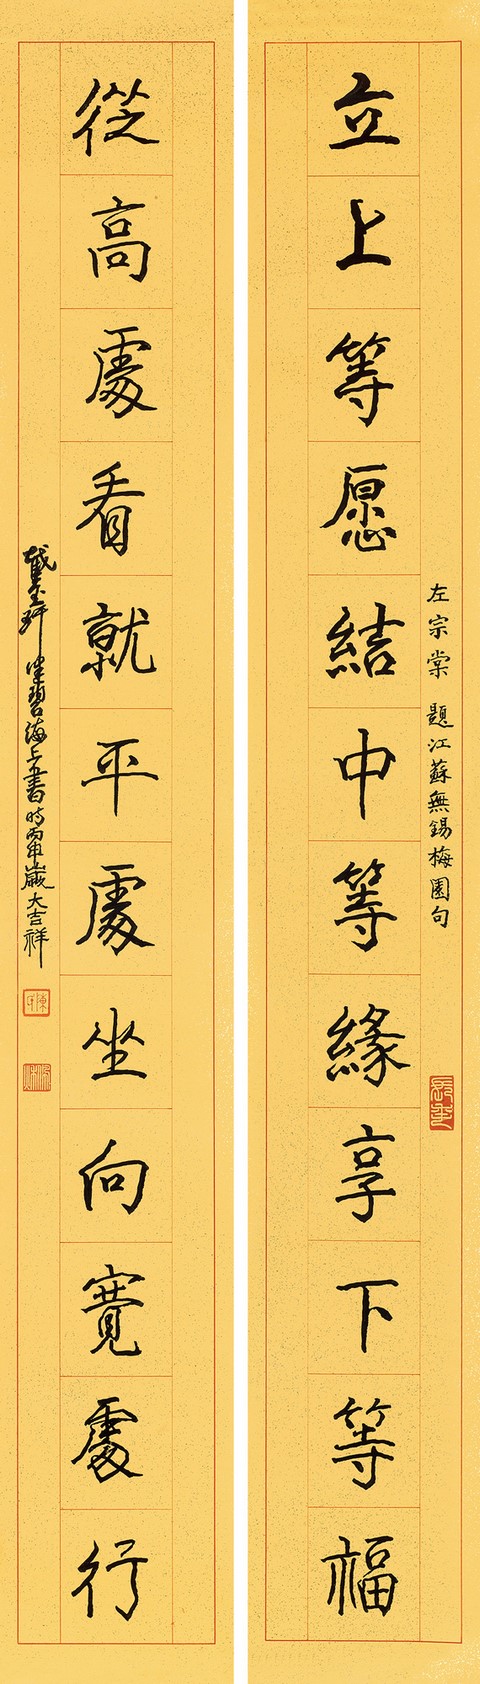 左宗棠 題江蘇無錫梅園句
立上等愿結中等緣享下等福
從高處看就平處坐向寬處行
書時丙申歲大吉祥